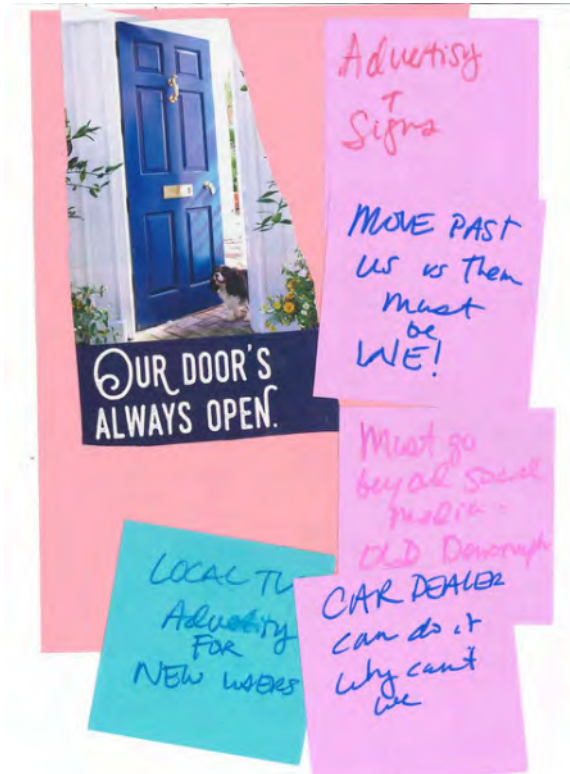 OUR DOOR'S
ALWAYS OPEN.
Advertisy
+
Signs
MOVE PAST
us vs Them
must
be
WE!
Must go
beyond Social
Media -
OLD
LOCAL TV
Advertisy
FOR
NEW USERS
CAR DEALER
can do it
why can't
we